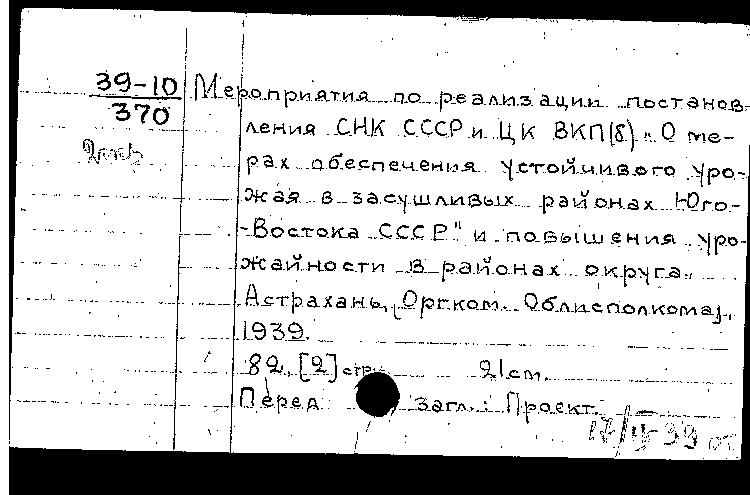 39-10
370
Мероприятия по реализации постанов-
ления СНК СССР и ЦК ВКП(б) „О ме-
рах обеспечения устойчивого уро-
жая в засушливых районах Юго-
-Востока СССР" и повышения уро-
жайности в районах округа.
Астрахань, [Орг.ком. Облисполкома],
1939.
82, [2] стр. 21 см.
Перед загл.: Проект.